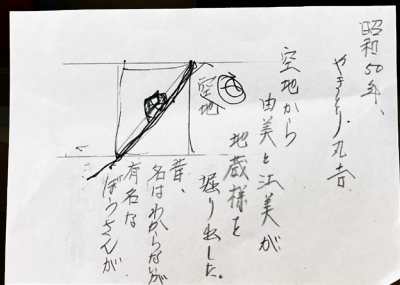 昭和50年、
やきとり丸吉
空地から
由美と江美が
地蔵様を
掘り出した。
昔、
名はわからないが
有名な
ぼうさんが
空地